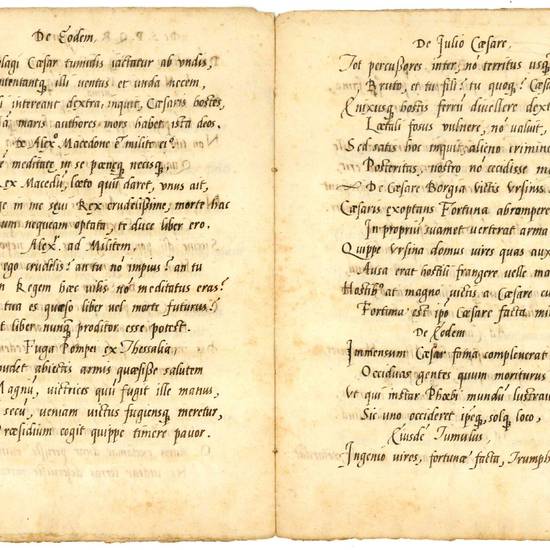 De Eodem,
lagi Cæsar tumidis iactatur ab undis,
ntentantq; illi ventus et unda necem,
i intereant dextra, inquit, Cæsaris hostes,
maris authores mors habet ista deos.
Alexº. Macedone é milite eiº.
é meditatę in se pœnęq; necisq;
ex Macedū, læto quū daret, unus ait,
e in me seui Rex crudelissime, morte hac
um nequeam optata, te duce liber ero.
Alexr. ad Militem,
ego crudelis? an tu nó impius? an tu
n Regem hæc vilis no meditatus eras?
tua es quæso liber vel morte futurus?
t liber nunq proditor esse potest.
Fuga Pompei ex Thessalia,
udet abiectis armis quæsisse salutem
Magnū, victrices quū fugit ille manus,
secū, veniam victus fugiensq; meretur,
Præsidium cogit quippe timere pavor.
De Julio Cæsare,
Tot percussores inter, nó territus usq
Bruto, et tu fili? tu quoq? Cæsa
hostis ferrū divellere dext
Lætali fosus vulnere, nó valuit,
Sed satis hoc inquit, alieno crimine
Posteritas, nostro nó cecidisse m
De Cæsare Borgia victis Ursinis
Cæsaris exoptans Fortuna abrumpere
In propriū suamet verterat arma
Quippe Ursina domus vires quas aux
Ausa erat hostili frangere velle ma
Hostibº at magno victis a Cæsare cu
Fortuna est ipo Cæsare facta mi
De Eodem
Immensum Cæsar fama compleverat
Occiduas gentes quum moriturus
Ut qui instar Phœbi mundū lustrav
Sic uno occideret ipeq, solq loco,
Eiusdé Tumulus,
Ingenio vires, fortunæ facta, Trumph